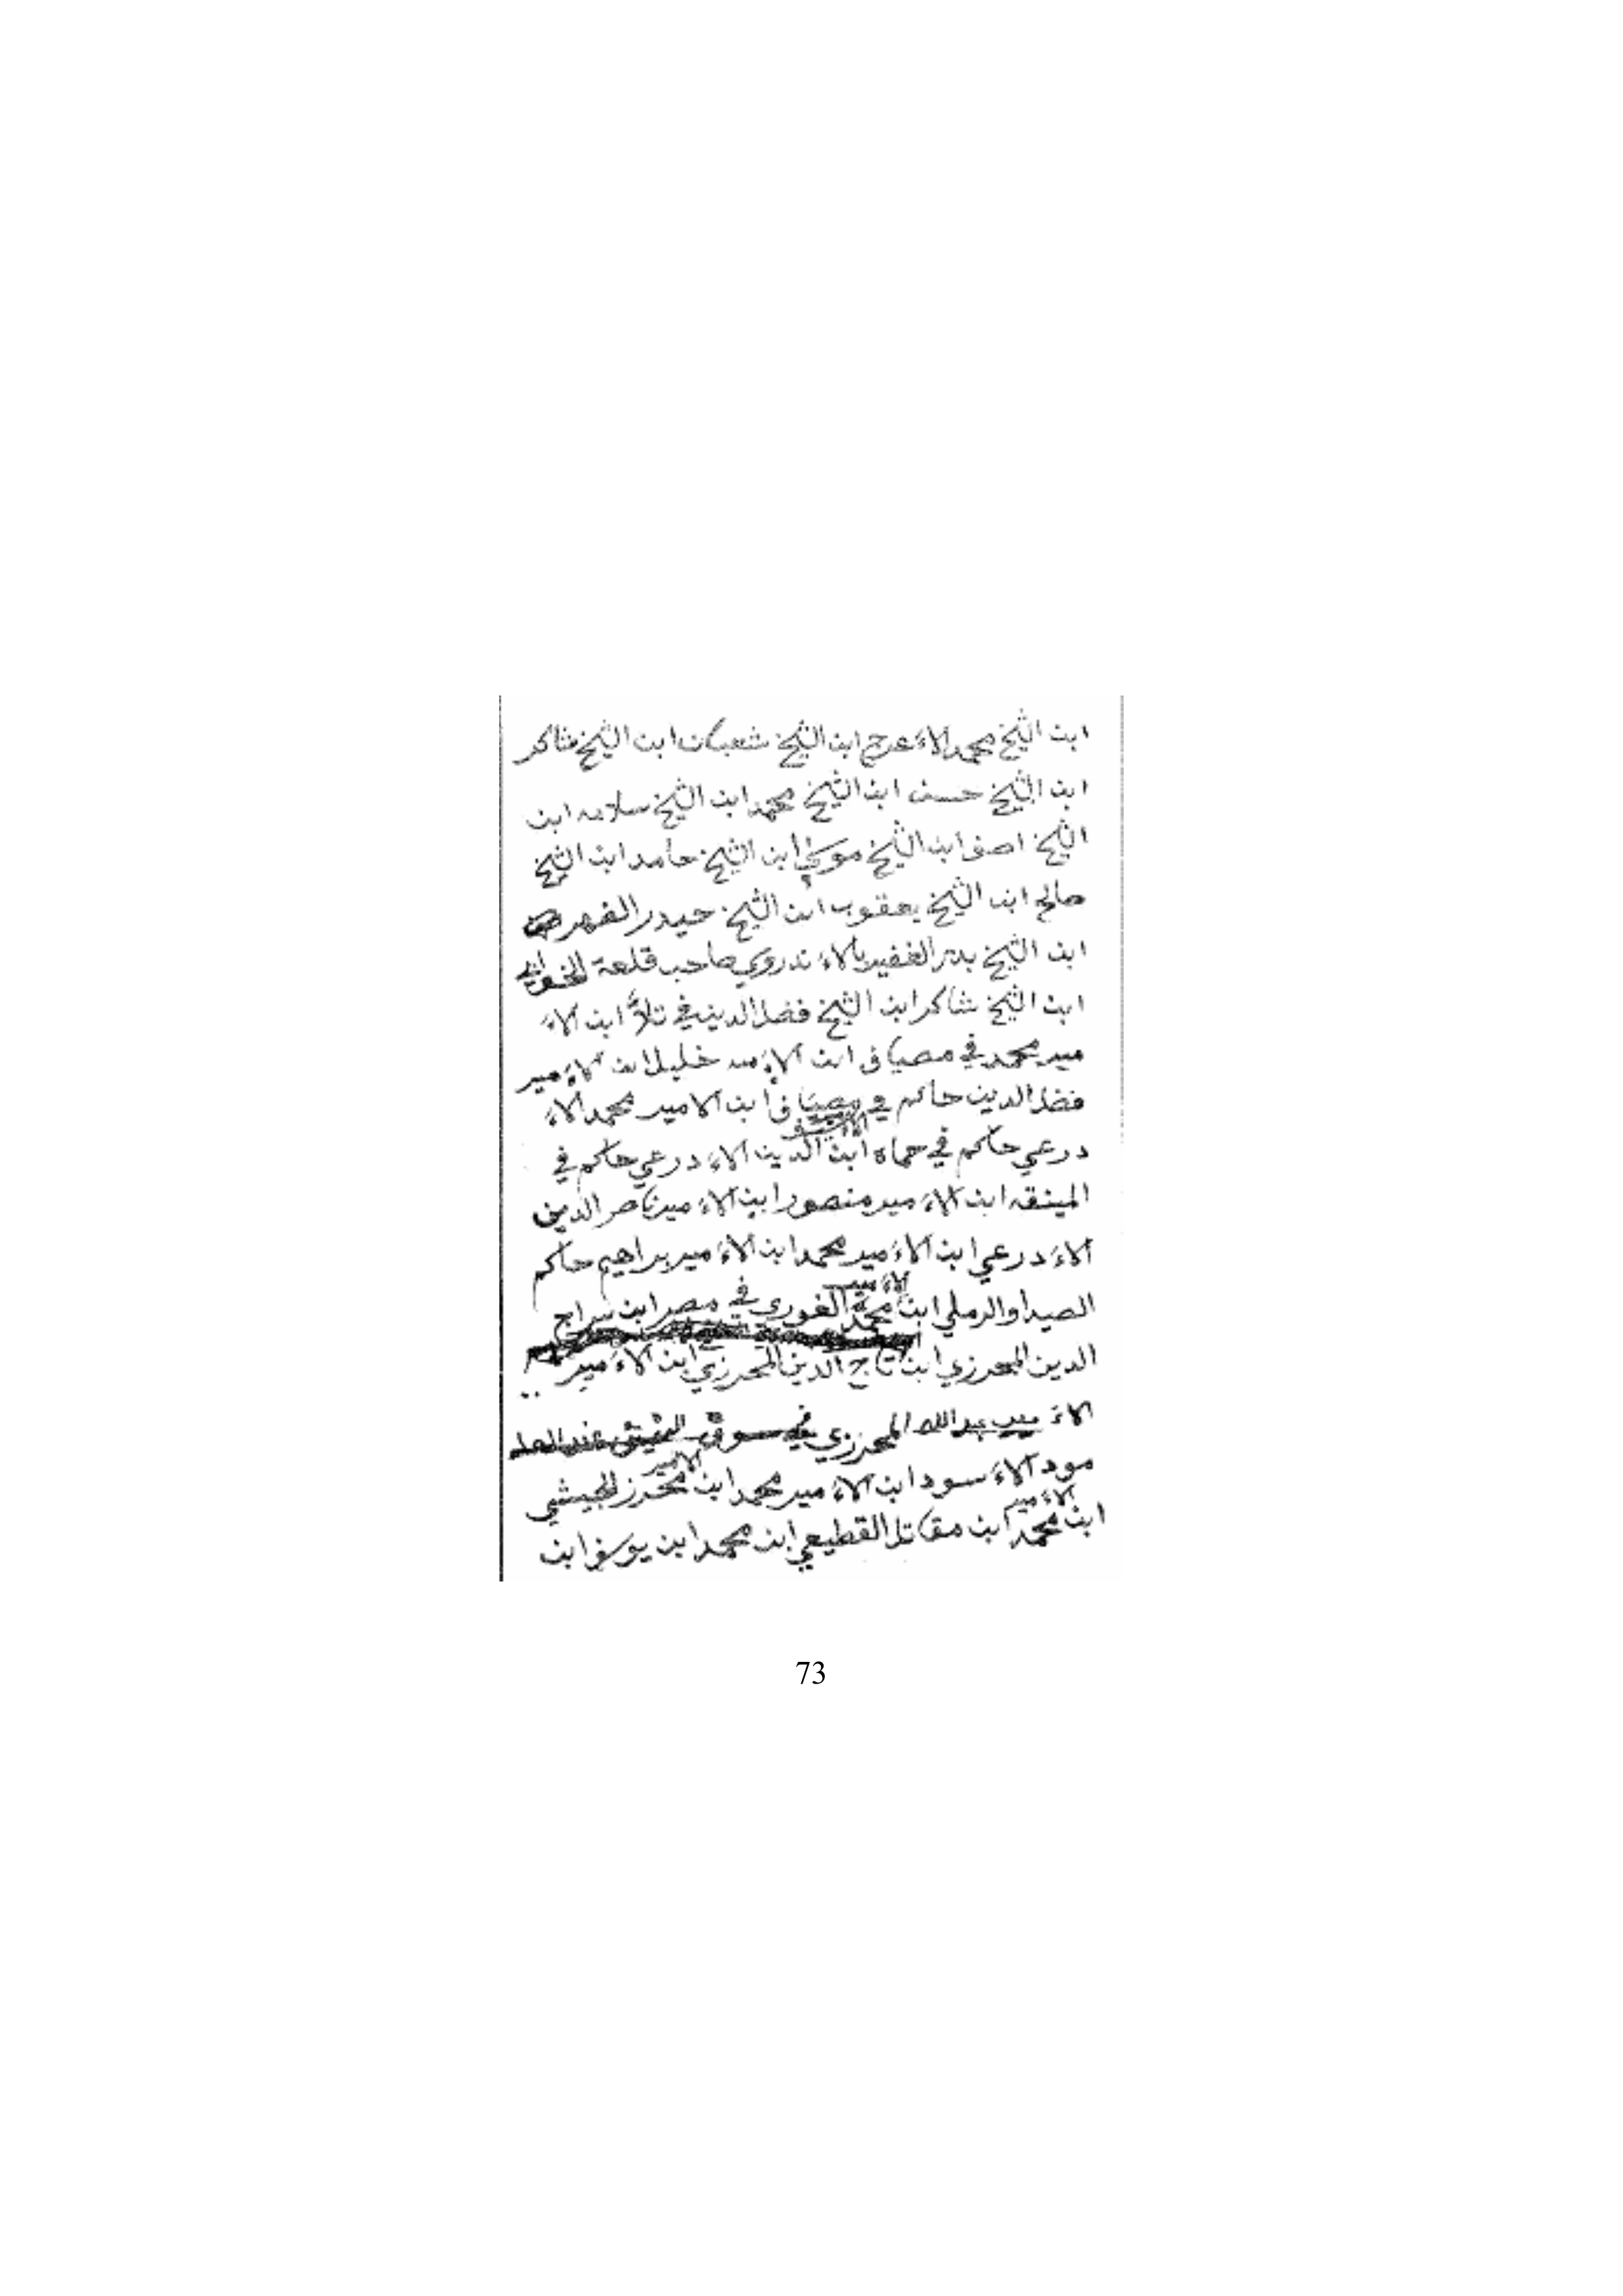 ابن الشيخ محمد الاءعرج ابن الشيخ شعبان ابن الشيخ شاكر
ابن الشيخ حسن ابن الشيخ محمد ابن الشيخ سلامه ابن
الشيخ اصف ابن الشيخ موسى ابن الشيخ حامد ابن الشيخ
صالح ابن الشيخ يعقوب ابن الشيخ حيدر الفهر
ابن الشيخ بدر الغفير بالاءندروي صاحب قلعة
ابن الشيخ شاكر ابن الشيخ فضل الدين في تلاّ ابن الاءَ
مير محمد في مصياف ابن الاءمير خليل ابن الاءمير
فضل الدين حاكم في مصياف ابن الامير محمد الاءَ
درعي حاكم في حماه ابن الدين الاءَدرعي حاكم في
المينقه ابن الاءَمير منصور ابن الاءَمير ناصر الدين
الاءَدرعي ابن الاءَمير محمد ابن الاءَمير براهيم حاكم
الاءمير
الصيدا والرملي ابن محمد الغوري في مصر ابن سراج
الدين المحرزي ابن تاج الدين المحرزي ابن الاءَمير
الاءَمير عبدالله المحرزي في سوق عند العا
الامير
مود الاءَسود ابن الاءَمير محمد ابن محرز الجيشي
الاءمير
ابن محمد ابن مقاتل القطيعي ابن محمد ابن يوسف ابن
73